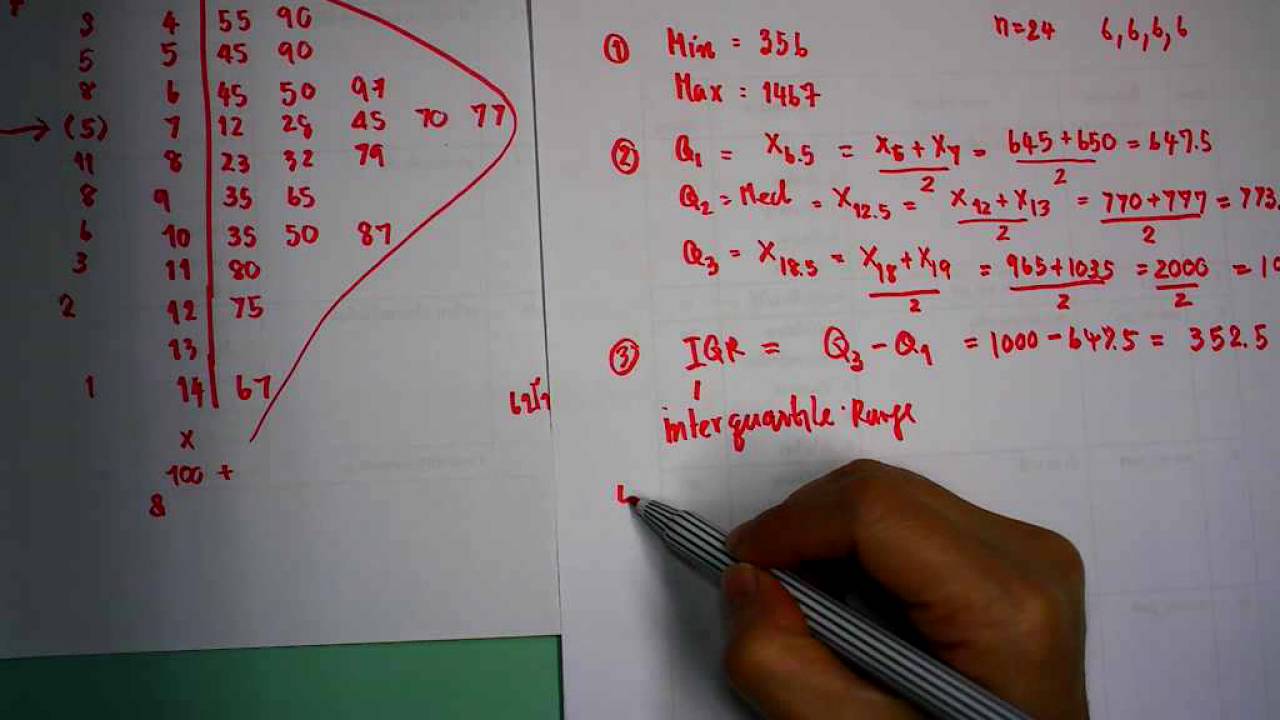 3 4 55 90
5 5 45 90
8 6 45 50 97
→ (5) 7 12 28 45 70 77
11 8 23 32 79
8 9 35 65
6 10 35 50 87
3 11 80
2 12 75
13
1 14 67
x
100 +
8
n=24 6,6,6,6
① Min = 356
Max = 1467
② Q1 = X6.5 = X6 + X7 / 2 = 645+650 / 2 = 647.5
Q2 = Med = X12.5 = X12 + X13 / 2 = 770+777 / 2 = 773.
Q3 = X18.5 = X18 + X19 / 2 = 965+1035 / 2 = 2000 / 2 = 10
③ IQR = Q3 - Q1 = 1000 - 647.5 = 352.5
interquartile Range